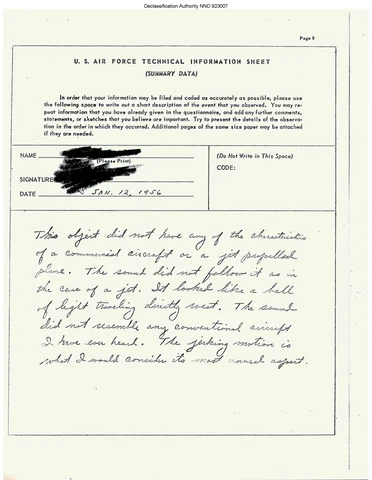 Declassification Authority NND 923007
Page 9
U. S. AIR FORCE TECHNICAL INFORMATION SHEET
(SUMMARY DATA)
In order that your information may be filed and coded as accurately as possible, please use
the following space to write out a short description of the event that you observed. You may re-
peat information that you have already given in the questionnaire, and add any further comments,
statements, or sketches that you believe are important. Try to present the details of the observa-
tion in the order in which they occurred. Additional pages of the same size paper may be attached
if they are needed.
NAME
(Please Print)
SIGNATURE
DATE JAN. 12, 1956
(Do Not Write in This Space)
CODE:
This object did not have any of the charistristics
of a commercial aircraft or a jet propelled
plane. The sound did not follow it as in
the case of a jet. It looked like a ball
of light traveling directly west. The sound
did not resemble any conventional aircraft
I have ever heard. The jerking motion is
what I would consider its most unusual aspect.